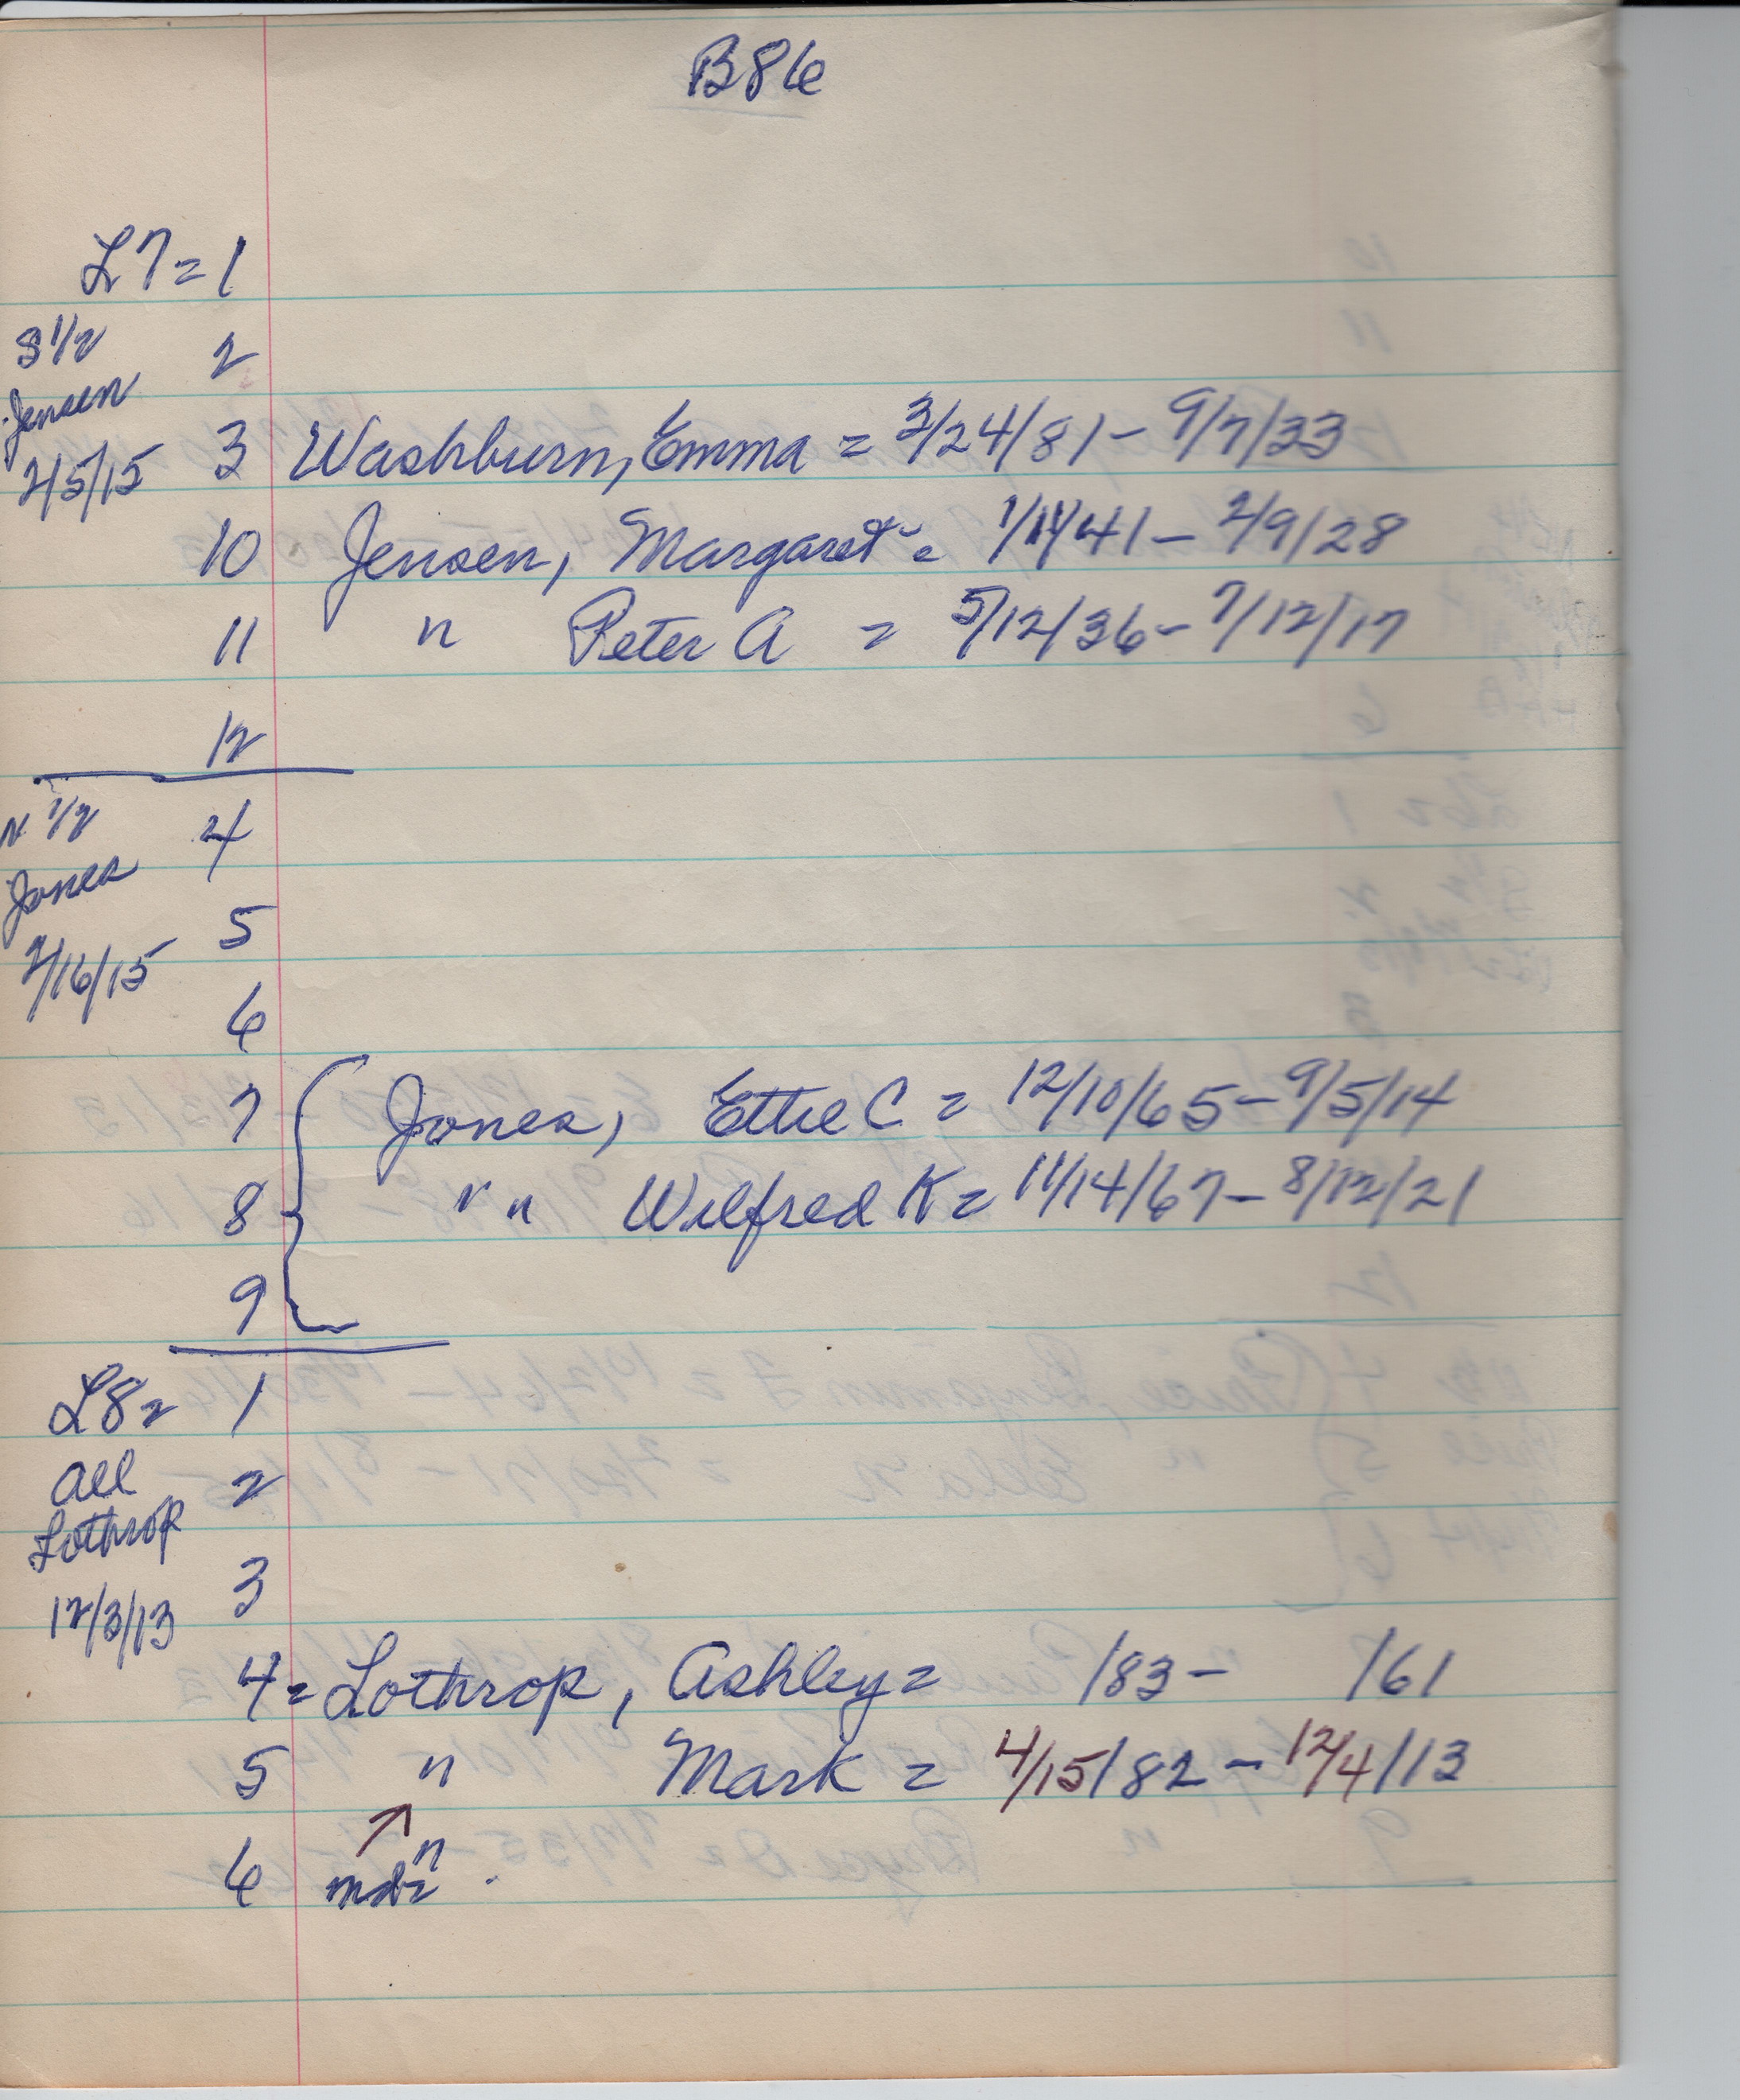 B86
L7 = 1
S 1/2 2
Jensen
2/5/15 3 Washburn, Emma = 3/24/81 - 9/7/33
10 Jensen, Margaret = 1/14/41 - 2/9/28
11 " Peter A = 5/12/36 - 7/12/17
12
N 1/2 4
Jones
5
2/16/15
6
7 Jones, Ettie C = 12/10/65 - 9/5/14
8 " " Wilfred K = 11/14/67 - 8/12/21
9
L8 = 1
All 2
Lothrop
3
12/3/13
4 = Lothrop, Ashley = /83 - /61
5 " Mark = 4/15/82 - 12/4/13
6 "